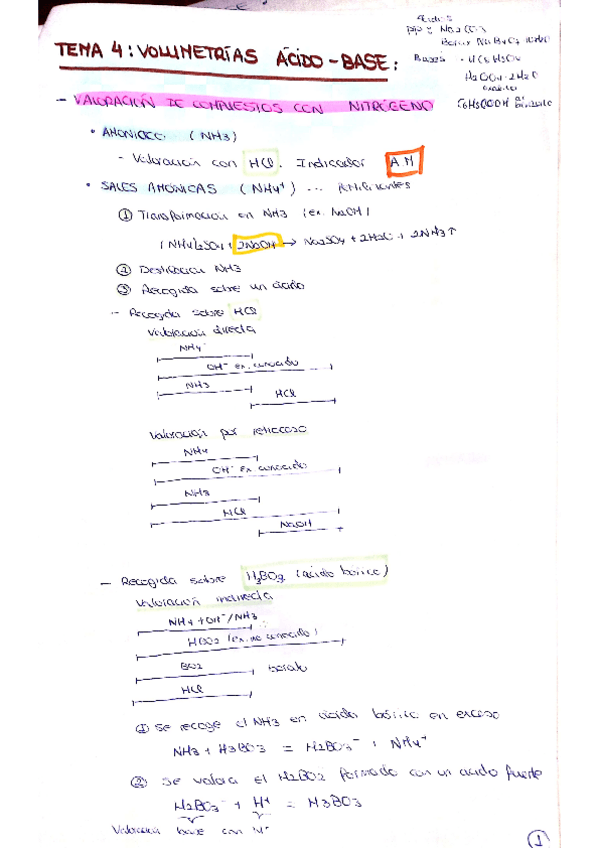 ácidos
pp: Na2CO3
Borax
Bases
H2C2O4·2H2O
C6H5COOH
TEMA 4: VOLUMETRÍAS ÁCIDO-BASE:
- VALORACIÓN DE COMPUESTOS CON NITRÓGENO
• AMONIACO (NH3)
- Valoración con HCl. Indicador A.M
• SALES AMÓNICAS (NH4+) ...
① Transformación en NH3 (ex. NaOH)
(NH4)2SO4 + 2NaOH → Na2SO4 + 2H2O + 2NH3↑
② Destilación NH3
③ Recogida sobre un ácido
- Recogida sobre HCl
Valoración directa
NH4
OH- ex. conocido
NH3
HCl
Valoración por retroceso
NH4
OH- ex conocido
NH3
HCl
NaOH
- Recogida sobre H3BO3 (ácido bórico)
Valoración indirecta
NH4 + OH-/NH3
HBO2 (ex. no conocido)
BO2 borato
HCl
① se recoge el NH3 en ácido bórico en exceso
NH3 + H3BO3 = H2BO3- + NH4+
② se valora el H2BO3 formado con un acido fuerte
H2BO3- + H+ = H3BO3
Valoración base con H+
1